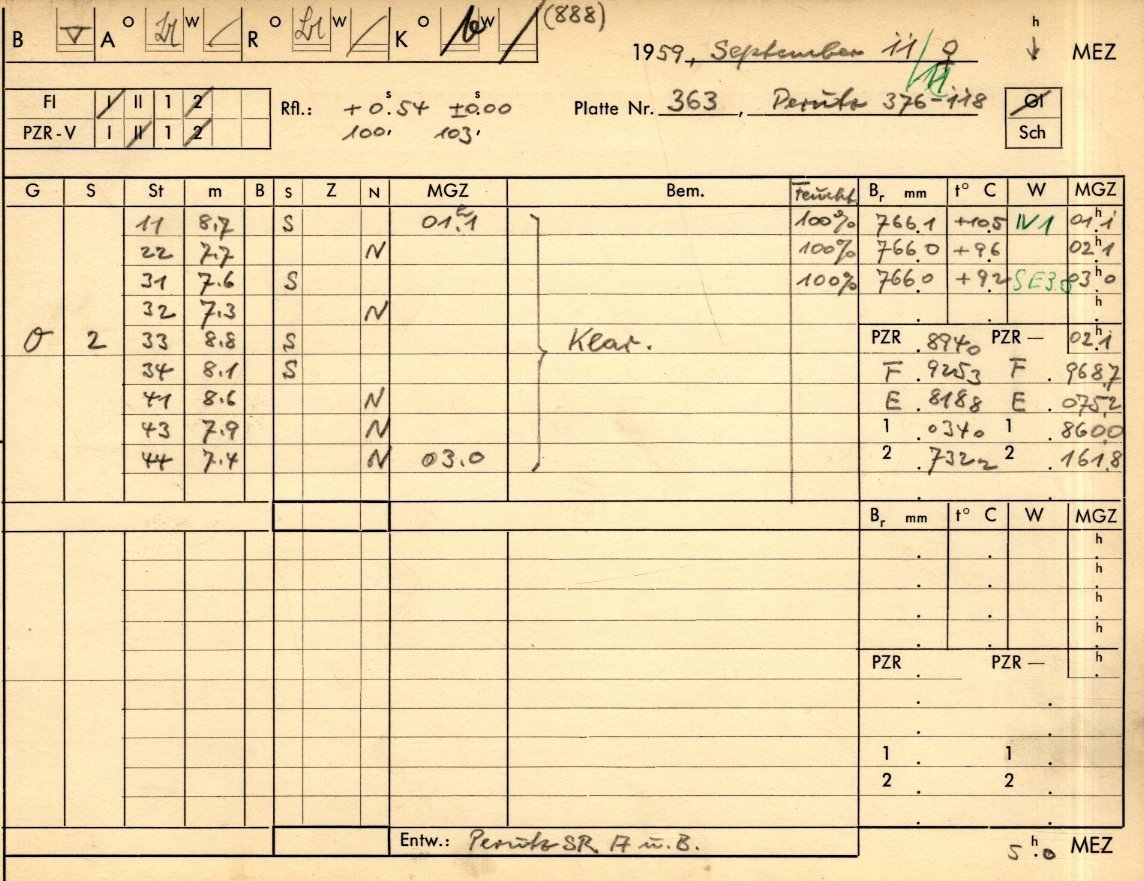 B A O W R O W K O W (888)
1959, September 11 h MEZ
Fl I II 1 2 Rfl.: +0.54 s ±0.00 s Platte Nr. 363, Perutz 376-118 Gl
PZR-V I II 1 2 100' 103' Sch
G S St m B S Z N MGZ Bem. Feucht. Br mm t° C W MGZ
11 8.7 S 01h.1 100% 766.1 +10.5 01h.1
22 7.7 N 100% 766.0 +9.6 02h.1
31 7.6 S 100% 766.0 +9.2 03h.0
32 7.3 N h
O 2 33 8.8 S Klar. PZR .8940 PZR — 02h.1
34 8.1 S F .9253 F . 9687
41 8.6 N E .8188 E . 0752
43 7.9 N 1 .0340 1 8600
44 7.4 N 03.0 2 .7322 2 1618
Br mm t° C W MGZ
h
h
h
h
PZR PZR — h
1 1
2 2
Entw.: Perutz SR A u. B.
5h.0 MEZ